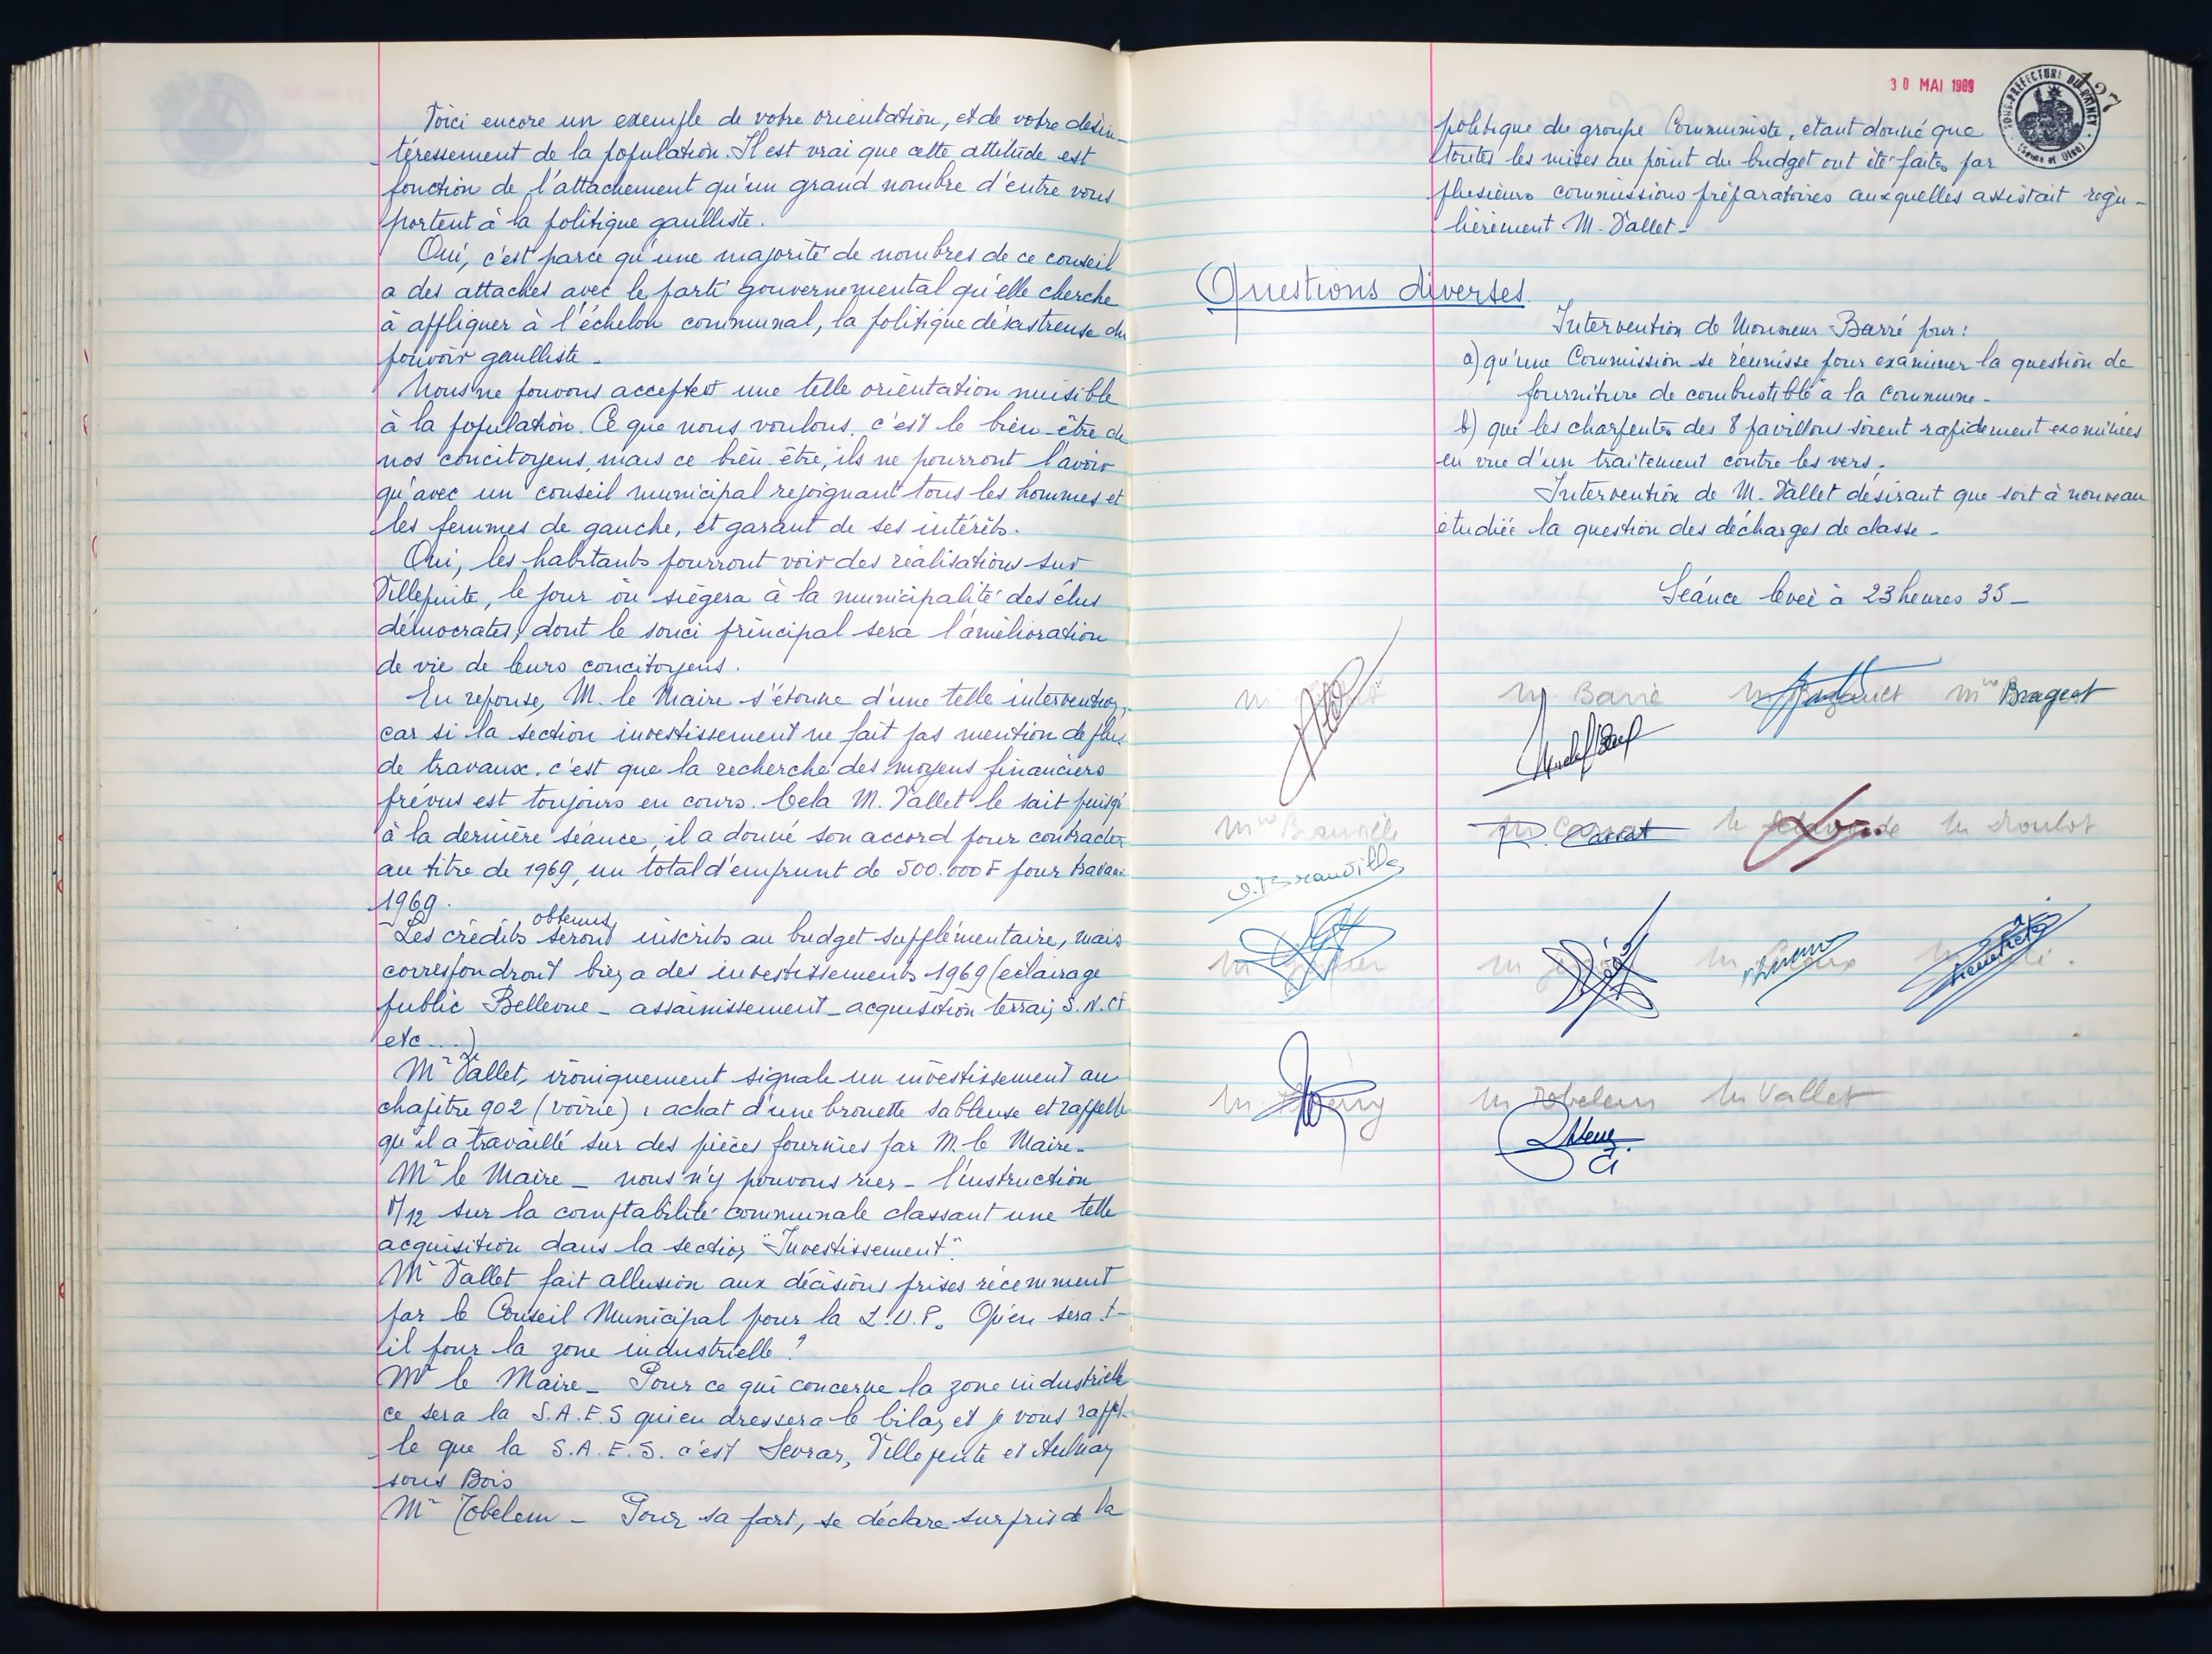 Voici encore un exemple de votre orientation, et de votre désin-
téressement de la population. Il est vrai que cette attitude est
fonction de l'attachement qu'un grand nombre d'entre vous
portent à la politique gaulliste.
Oui, c'est parce qu'une majorité de nombres de ce conseil
a des attaches avec le parti gouvernemental qu'elle cherche
à appliquer à l'échelon communal, la politique désastreuse du
pouvoir gaulliste.
Nous ne pouvons accepter une telle orientation nuisible
à la population. Ce que nous voulons, c'est le bien-être de
nos concitoyens, mais ce bien-être, ils ne pourront l'avoir
qu'avec un conseil municipal rejoignant tous les hommes et
les femmes de gauche, et garant de ses intérêts.
Oui, les habitants pourront voir des réalisations sur
Villepinte, le jour où siègera à la municipalité des élus
démocrates, dont le souci principal sera l'amélioration
de vie de leurs concitoyens.
En réponse, M. le Maire s'étonne d'une telle intervention,
car si la section investissement ne fait pas mention de plus
de travaux. c'est que la recherche des moyens financiers
prévus est toujours en cours. Cela M. Vallet le sait puisqu'
à la dernière séance, il a donné son accord pour contracter
au titre de 1969, un total d'emprunt de 500.000 F pour travaux
1969.
Les crédits obtenus seront inscrits au budget supplémentaire, mais
correspondront bien a des investissements 1969 (eclairage
public Bellevue - assainissement - acquisition terrain S.N.CF
etc....)
Mr Vallet, ironiquement signale un investissement au
chapitre 902 (voirie) : achat d'une brouette sableuse et rappelle
qu'il a travaillé sur des pièces fournies par M. le Maire.
Mr le Maire - nous n'y pouvons rien - l'instruction
M12 sur la comptabilité communale classant une telle
acquisition dans la section "Investissement".
Mr Vallet fait allusion aux décisions prises récemment
par le Conseil Municipal pour la Z.U.P. Qu'en sera-t-
il pour la zone industrielle ?
Mr le Maire - Pour ce qui concerne la zone industrielle
ce sera la S.A.E.S qui en dressera le bilan et je vous rappel-
le que la S.A.E.S. c'est Sevran, Villepinte et Aulnay
sous Bois
Mr Tobelem - Pour sa part, se déclare surpris de la
30 MAI 1969
SOUS-PREFECTURE DU RAINCY
(Seine et Oise)
127
politique du groupe Communiste, étant donné que
toutes les mises au point du budget ont été faites par
plusieurs commissions préparatoires auxquelles assistait régu-
lièrement M. Vallet.
Questions diverses.
Intervention de Monsieur Barré pour :
a) qu'une Commission se réunisse pour examiner la question de
fourniture de combustible à la Commune.
b) que les charpentes des 8 pavillons soient rapidement examinées
en vue d'un traitement contre les vers.
Intervention de M. Vallet désirant que soit à nouveau
étudiée la question des décharges de classe.
Séance levée à 23 heures 35 -
M Barré Mme Brageot
Mme Branville M Carrat M Droulot
D. Branville
R. Carrat
M Tobelem M Vallet